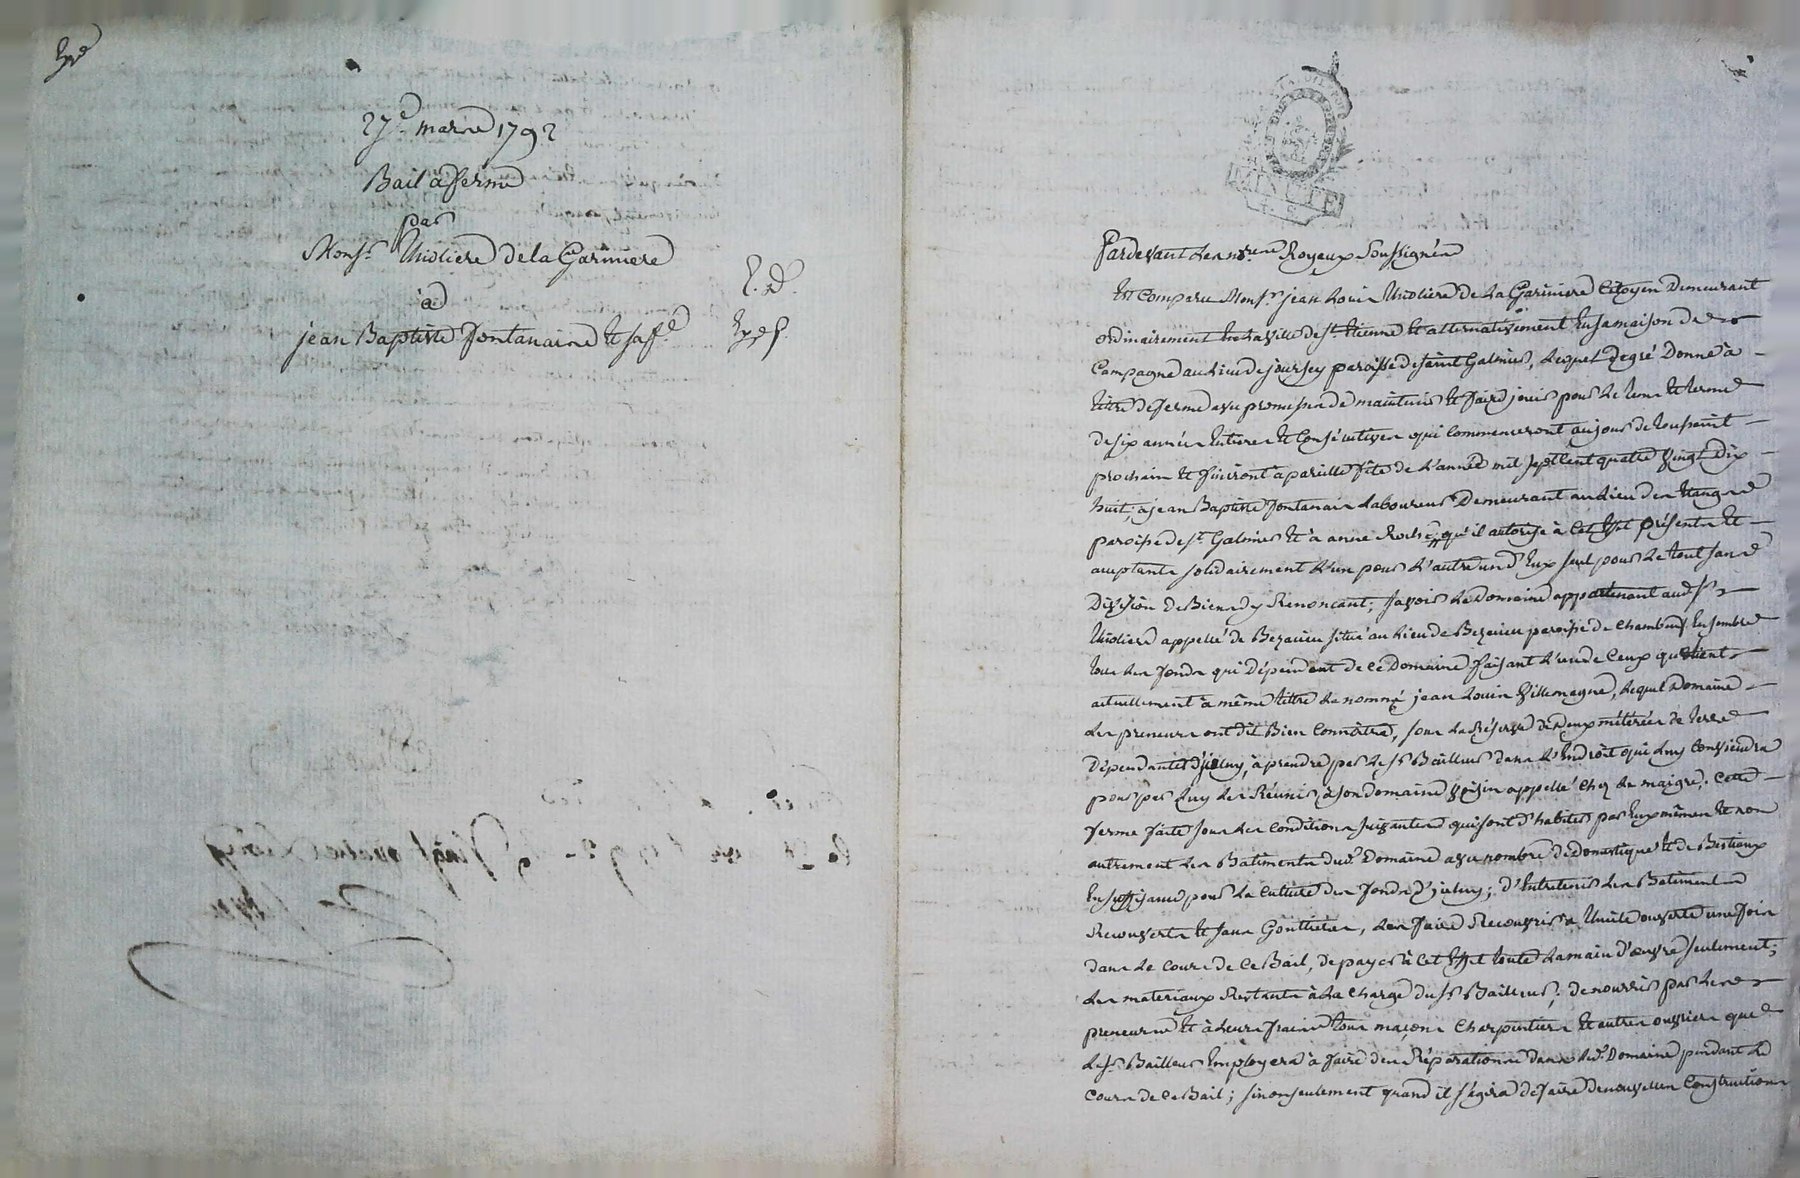 Exp.é
27.e mars 1792
Bail à ferme
par
Mons.r Thiolière de la Garinière
à
jean Baptiste Fontanaine et sa f.e
E. d.
Exp.
MINUTE
Pardevant les no.res Royaux Soussignés
Est Comparu Mons.r jean Louis Thiolière de La Garinière Citoyen Demeurant
ordinairement En la ville de s.t Etienne et alternativement En sa maison de
Campagne au Lieu de joursey paroisse de saint Galmier, Lequel de gré Donne à
titre de ferme avec promesse de maintenir et faire jouir pour Le tems et terme
de six années Entieres et Consécutives qui Commenceront au jour de toussaint
prochain et finiront à pareille fête de L'année mil sept Cent quatre vingt dix
huit, à jean Baptiste fontanaine Laboureur Demeurant au Lieu des Etangs
paroisse de s.t Galmier et à anne Roche, qu'il autorise à Cet Effet présents et
acceptants solidairement L'un pour L'autre un d'Eux seul pour Le tout sans
Division de Biens y Renonçant; savoir Le Domaine appartenant aud. s.r
Thiolière appellé de Bezacieu situé au Lieu de Bezacieu paroisse de Chambeuf Ensemble
tous Les fonds qui Dépendent de Ce Domaine faisant L'un de Ceux que tient
actuellement à même titre Le nommé jean Louis Villemagne, Lequel Domaine
Les preneurs ont dit Bien Connoitre, sous La Réserve de Deux métérées de terre
Dépendantes d'iceluy, à prendre par Le s.r Bailleur dans L'Endroit qui Luy Conviendra
pour par Luy Les Réunir à son domaine voisin appellé Chez Le maigre. Cette
ferme faite sous Les Conditions suivantes qui sont d'habiter par Eux mêmes et non
autrement Les Batiments dud. Domaine avec nombre de Domestiques et de Bestiaux
En suffisance pour La Culture des fonds d'iceluy; d'Entretenir Les Batiments
Recouverts et sans Gouttières, Les faire Recouvrir à thuile ouverte une fois
dans Le Cours de Ce Bail, de payer à Cet Effet toute La main d'œuvre seulement;
Les materiaux Restants à La Charge du s.r Bailleur; de nourrir par Les
preneurs et à Leurs frais tous maçons Charpentiers et autres ouvriers que
Le s.r Bailleur Employera à faire des Réparations dans Led. Domaine pendant Le
Cours de Ce Bail; sinon seulement quand il s'agira de faire de nouvelles Constructions